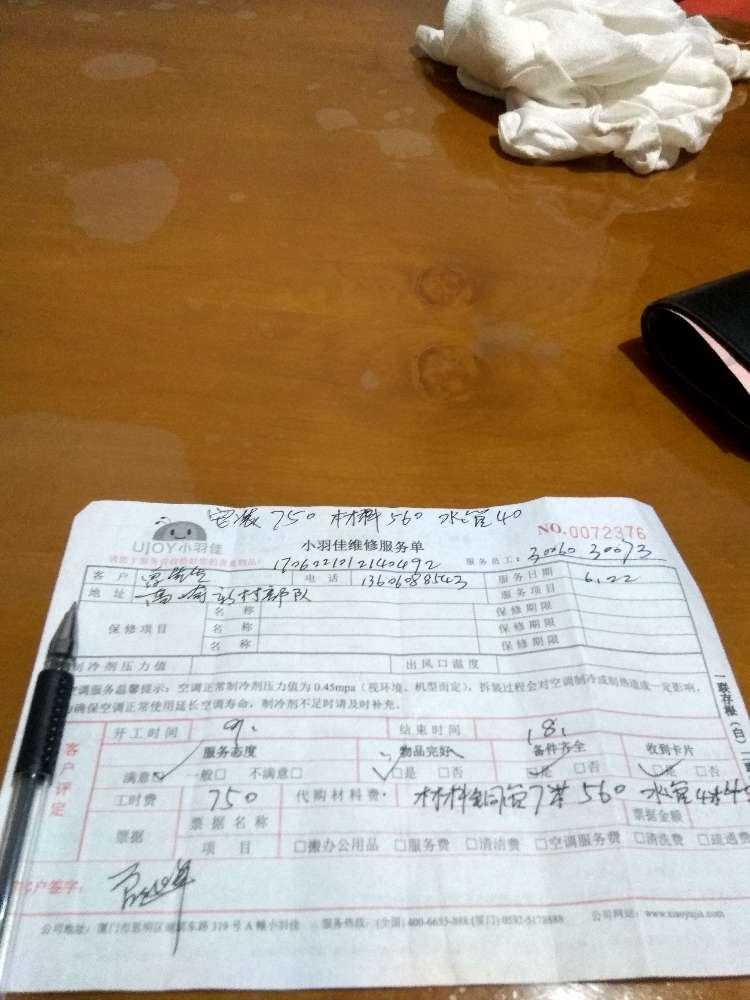 安装750 材料560 水管40
UJOY小羽佳
小羽佳维修服务单
NO.0072376
1706221012140492
服务员工: 30060 30073
客户
电话 13606088543
服务日期 6.22
地址 高崎新村部队
服务项目
保修项目
名称 保修期限
名称 保修期限
名称 保修期限
制冷剂压力值 出风口温度
空调服务温馨提示:空调正常制冷剂压力值为0.45mpa(视环境、机型而定),拆装过程会对空调制冷或制热造成一定影响,
为确保空调正常使用延长空调寿命,制冷剂不足时请及时补充。
一联存根(白)
开工时间 9: 结束时间 18:
客户评定
服务态度 物品完好 备件齐全 收到卡片
满意 一般□ 不满意□ □是 □否 □是 □否 □是 □否
工时费 750 代购材料费: 材料铜管7米560 水管4米45
票据 票据名称 票据金额
项目 □搬办公用品 □服务费 □清洁费 □空调服务费 □清洗费 □疏通费
客户签字:
公司地址:厦门市思明区湖滨东路319号A幢小羽佳 服务热线:(全国)400-6655-888 (厦门)0592-5178888 公司网站:www.xiaoyujia.com